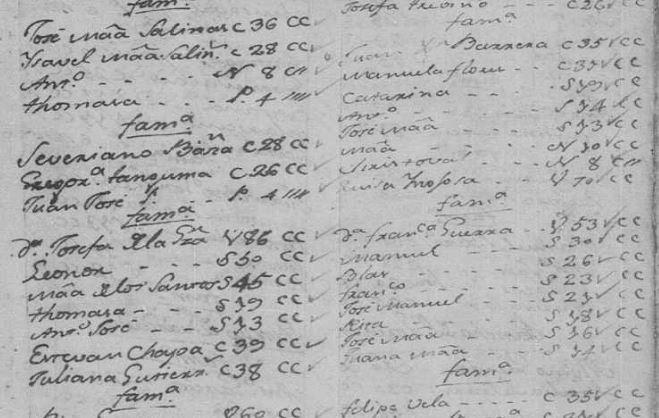 fam.ª
José Mãa Salinas c 36 cc
Ysavel Mãa Salin.s c 28 cc
Ant.º - - - N 8 c
thomasa - - - P. 4
fam.ª
Severiano c 28 cc
Gregor.ª tanguma c 26 cc
Juan José P. 4
fam.ª
d.ª Josefa dela Gza V 86 cc
Leonor - - - S 50 cc
Mãa delos Santos S 45 cc
thomasa - - - S 19 cc
Ant.º José - - S 13 cc
Estevan Chapa c 39 cc
Juliana Gutierr.z c 38 cc
fam.ª
Josefa treviño - - c 26 cc
fam.ª
Juan Barrera c 35 cc
Manuela flores - - c 37 cc
Catarina - - - S 19 cc
Ant.º - - - S 14 cc
José Mãa - - - S 13 cc
Mãa - - - N 10 cc
- - - N 8 c
Luisa Ynojosa - - V 70 cc
fam.ª
d.ª fran.ca Guerra - - V 53 cc
Manuel - - - S 30 cc
Blas - - - S 26 cc
fran.co - - - S 23 cc
José Manuel - - - S 21 cc
Rita - - - S 18 cc
José Mãa - - - S 16 cc
Juana Mãa - - - S 14 cc
fam.ª
felipe Vela - - - c 35 cc